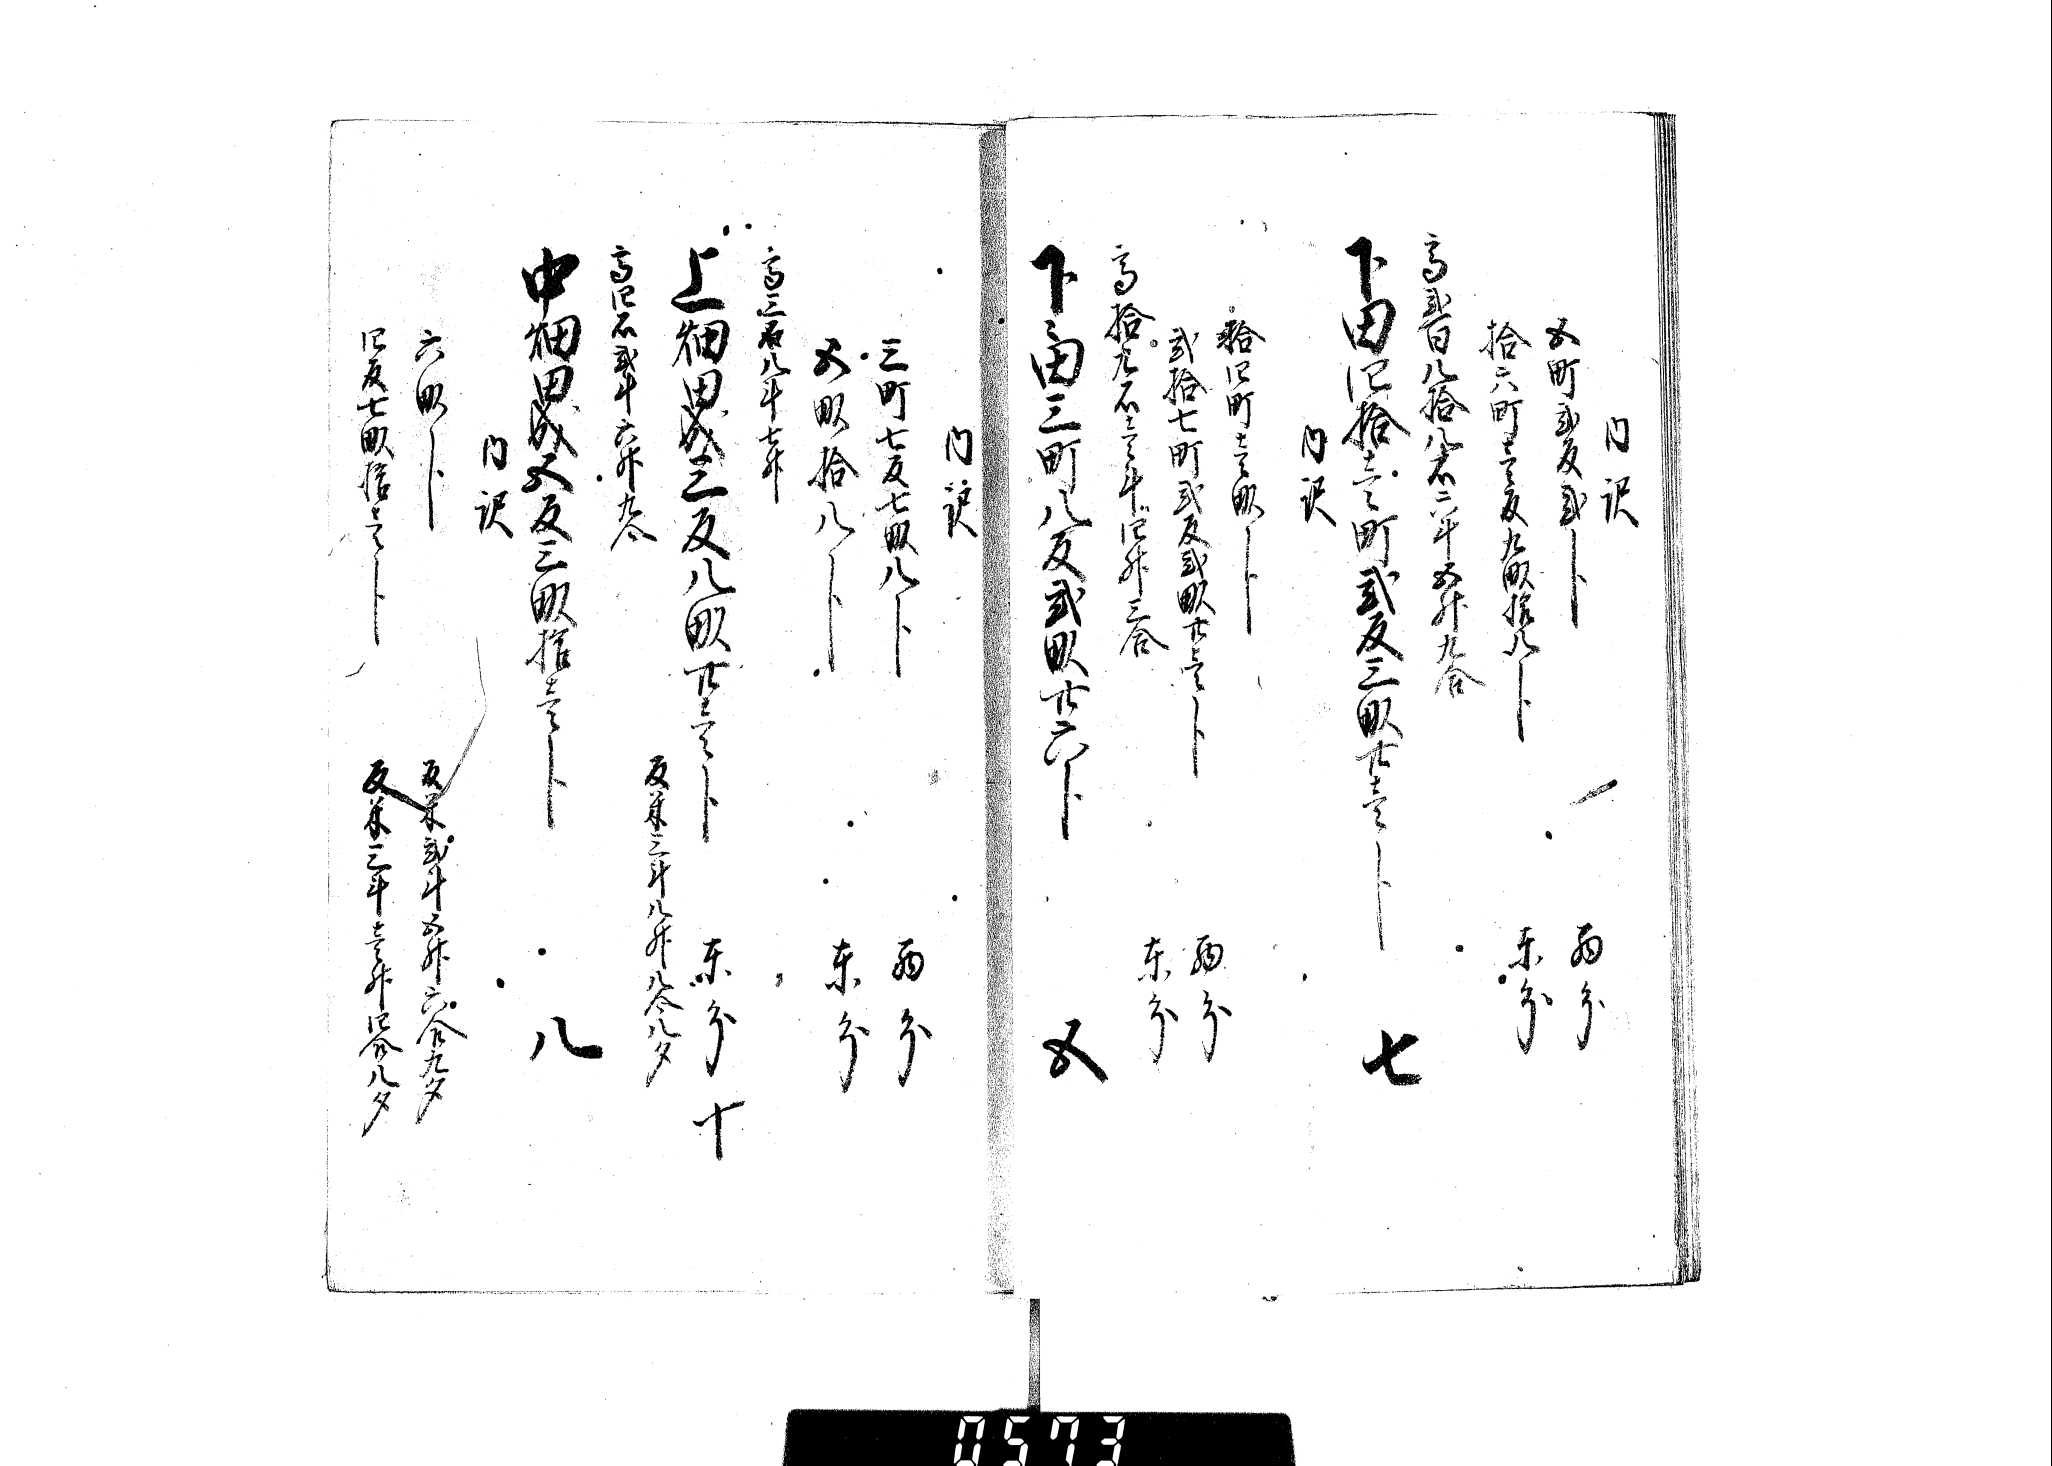 内訳
五町弐反弐歩 西分
拾六町壱反九畝拾八歩 東分
高弐百八拾八石六斗五升九合
下田四拾壱町弐反三畝廿壱歩 七
内訳
拾四町壱畝歩 西分
弐拾七町弐反弐畝廿壱歩 東分
高拾九石壱斗四升三合
下々田三町八反弐畝廿六歩 五
内訳
三町七反七畝八歩 西分
五畝拾八歩 東分
高三石八斗七升
上畑田成三反八畝廿壱歩 東分 十
反米三斗八升八合八夕
高四石弐斗六升九合
中畑田成五反三畝拾壱歩 八
内訳
六畝歩 反米弐斗五升六合九夕
四反七畝拾壱歩 反米三斗壱升四合八夕
0573